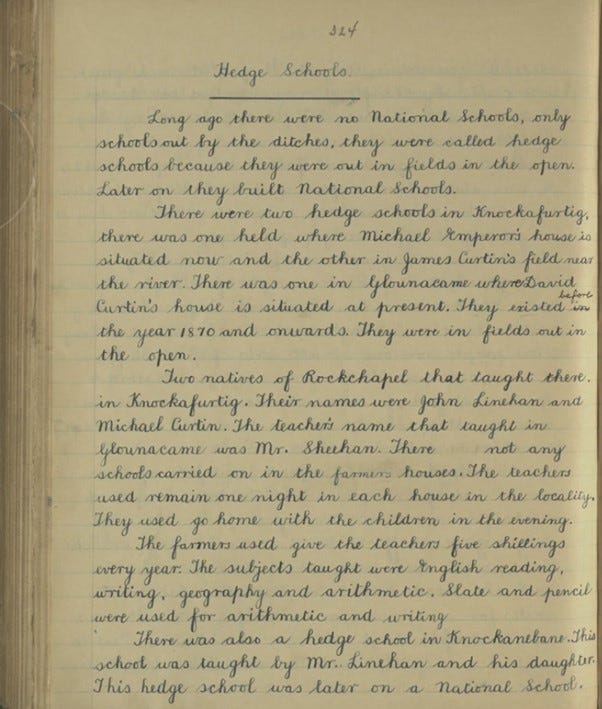 324
Hedge Schools.
Long ago there were no National Schools, only
schools out by the ditches, they were called hedge
schools because they were out in fields in the open.
Later on they built National Schools.
There were two hedge schools in Knockafurtig,
there was one held where Michael Emperor's house is
situated now and the other in James Curtin's field near
the river. There was one in Glounacame where David
Curtin's house is situated at present. They existed in
before
the year 1870 and onwards. They were in fields out in
the open.
Two natives of Rockchapel that taught there.
in Knockafurtig. Their names were John Linehan and
Michael Curtin. The teacher's name that taught in
Glounacame was Mr. Sheehan. There not any
schools carried on in the farmers houses. The teachers
used remain one night in each house in the locality.
They used go home with the children in the evening.
The farmers used give the teachers five shillings
every year. The subjects taught were English reading,
writing, geography and arithmetic. Slate and pencil
were used for arithmetic and writing
There was also a hedge school in Knockanebane. This
school was taught by Mr. Linehan and his daughter.
This hedge school was later on a National School.